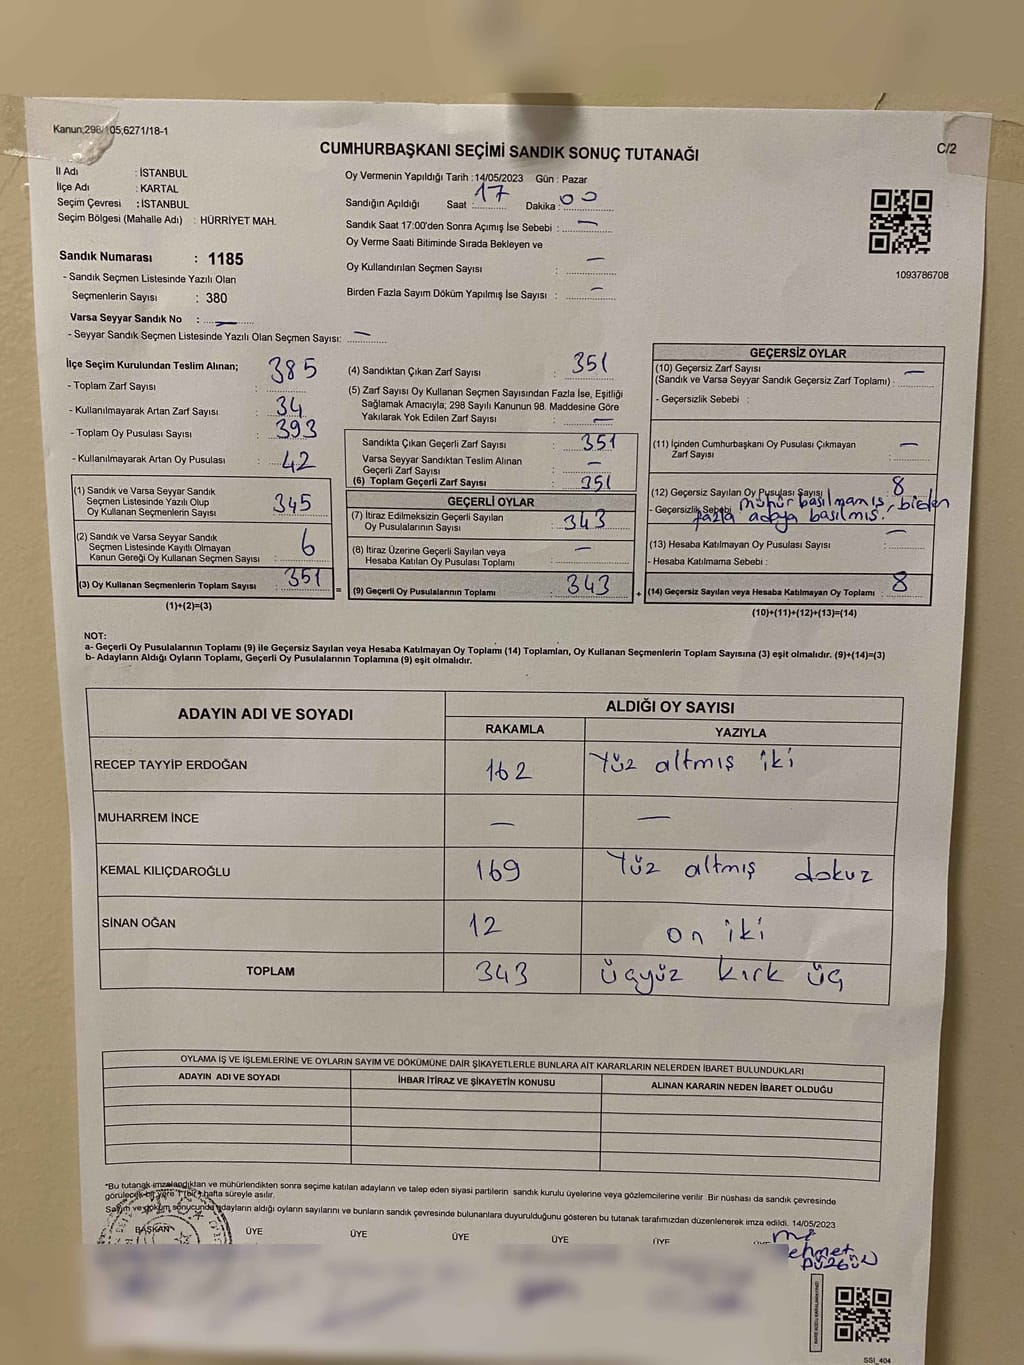 Kanun;298/105;6271/18-1
C/2
CUMHURBAŞKANI SEÇİMİ SANDIK SONUÇ TUTANAĞI
İl Adı : İSTANBUL
İlçe Adı : KARTAL
Seçim Çevresi : İSTANBUL
Seçim Bölgesi (Mahalle Adı) : HÜRRİYET MAH.
Sandık Numarası : 1185
- Sandık Seçmen Listesinde Yazılı Olan
Seçmenlerin Sayısı : 380
Varsa Seyyar Sandık No : —
- Seyyar Sandık Seçmen Listesinde Yazılı Olan Seçmen Sayısı: —
Oy Vermenin Yapıldığı Tarih : 14/05/2023 Gün : Pazar
Sandığın Açıldığı Saat : 17 Dakika : 00
Sandık Saat 17:00'den Sonra Açımış İse Sebebi : —
Oy Verme Saati Bitiminde Sırada Bekleyen ve
Oy Kullandırılan Seçmen Sayısı : —
Birden Fazla Sayım Döküm Yapılmış İse Sayısı : —
1093786708
İlçe Seçim Kurulundan Teslim Alınan;
- Toplam Zarf Sayısı : 385
- Kullanılmayarak Artan Zarf Sayısı : 34
- Toplam Oy Pusulası Sayısı : 393
- Kullanılmayarak Artan Oy Pusulası : 42
(1) Sandık ve Varsa Seyyar Sandık
Seçmen Listesinde Yazılı Olup
Oy Kullanan Seçmenlerin Sayısı : 345
(2) Sandık ve Varsa Seyyar Sandık
Seçmen Listesinde Kayıtlı Olmayan
Kanun Gereği Oy Kullanan Seçmen Sayısı : 6
(3) Oy Kullanan Seçmenlerin Toplam Sayısı : 351
(1)+(2)=(3)
(4) Sandıktan Çıkan Zarf Sayısı : 351
(5) Zarf Sayısı Oy Kullanan Seçmen Sayısından Fazla İse, Eşitliği
Sağlamak Amacıyla; 298 Sayılı Kanunun 98. Maddesine Göre
Yakılarak Yok Edilen Zarf Sayısı : —
Sandıkta Çıkan Geçerli Zarf Sayısı : 351
Varsa Seyyar Sandıktan Teslim Alınan
Geçerli Zarf Sayısı : —
(6) Toplam Geçerli Zarf Sayısı : 351
GEÇERLİ OYLAR
(7) İtiraz Edilmeksizin Geçerli Sayılan
Oy Pusulalarının Sayısı : 343
(8) İtiraz Üzerine Geçerli Sayılan veya
Hesaba Katılan Oy Pusulası Toplamı : —
= (9) Geçerli Oy Pusulalarının Toplamı : 343
GEÇERSİZ OYLAR
(10) Geçersiz Zarf Sayısı
(Sandık ve Varsa Seyyar Sandık Geçersiz Zarf Toplamı) : —
- Geçersizlik Sebebi :
(11) İçinden Cumhurbaşkanı Oy Pusulası Çıkmayan
Zarf Sayısı : —
(12) Geçersiz Sayılan Oy Pusulası Sayısı : 8
- Geçersizlik Sebebi mühür basılmamış, birden
fazla adaya basılmış.
(13) Hesaba Katılmayan Oy Pusulası Sayısı : —
- Hesaba Katılmama Sebebi :
+ (14) Geçersiz Sayılan veya Hesaba Katılmayan Oy Toplamı : 8
(10)+(11)+(12)+(13)=(14)
NOT:
a- Geçerli Oy Pusulalarının Toplamı (9) ile Geçersiz Sayılan veya Hesaba Katılmayan Oy Toplamı (14) Toplamları, Oy Kullanan Seçmenlerin Toplam Sayısına (3) eşit olmalıdır. (9)+(14)=(3)
b- Adayların Aldığı Oyların Toplamı, Geçerli Oy Pusulalarının Toplamına (9) eşit olmalıdır.
ADAYIN ADI VE SOYADI
ALDIĞI OY SAYISI
RAKAMLA YAZIYLA
RECEP TAYYİP ERDOĞAN 162 Yüz altmış iki
MUHARREM İNCE — —
KEMAL KILIÇDAROĞLU 169 Yüz altmış dokuz
SİNAN OĞAN 12 on iki
TOPLAM 343 üçyüz kırk üç
OYLAMA İŞ VE İŞLEMLERİNE VE OYLARIN SAYIM VE DÖKÜMÜNE DAİR ŞİKAYETLERLE BUNLARA AİT KARARLARIN NELERDEN İBARET BULUNDUKLARI
ADAYIN ADI VE SOYADI İHBAR İTİRAZ VE ŞİKAYETİN KONUSU ALINAN KARARIN NEDEN İBARET OLDUĞU
*Bu tutanak imzalandıktan ve mühürlendikten sonra seçime katılan adayların ve talep eden siyasi partilerin sandık kurulu üyelerine veya gözlemcilerine verilir. Bir nüshası da sandık çevresinde
görülecek bir yere 1 (bir) hafta süreyle asılır.
Sayım ve döküm sonucunda adayların aldığı oyların sayılarını ve bunların sandık çevresinde bulunanlara duyurulduğunu gösteren bu tutanak tarafımızdan düzenlenerek imza edildi. 14/05/2023
BAŞKAN ÜYE ÜYE ÜYE ÜYE ÜYE
SSI_404